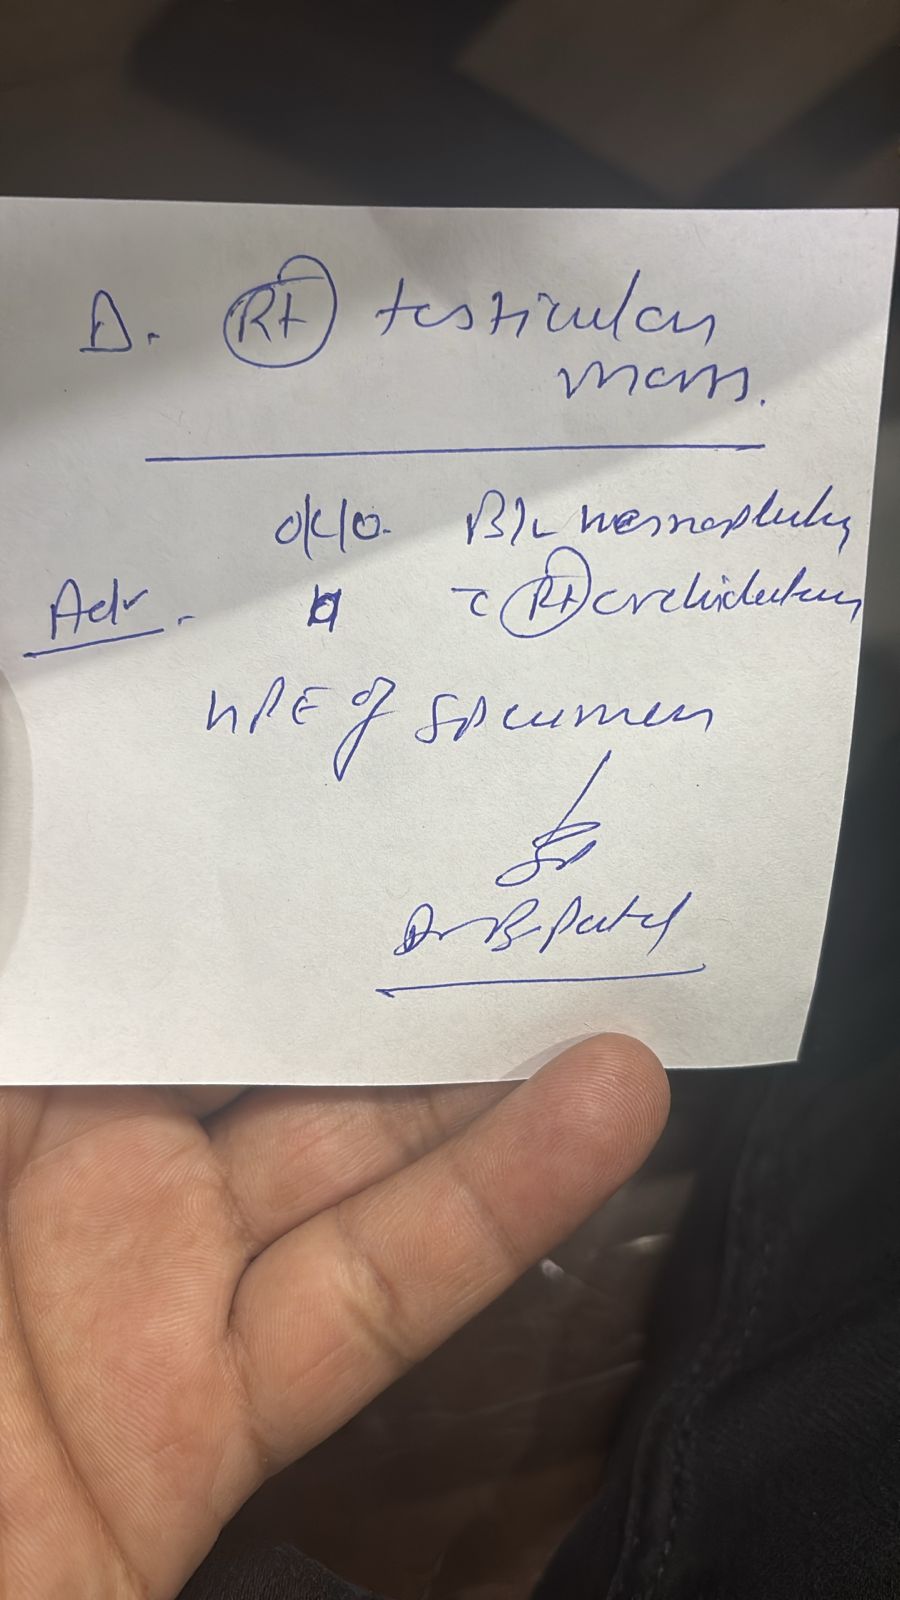 D. Rt testicular
mass.
o/k/o. B/L hernioplasty
Adv. c̄ Rt orchidectomy
HPE of specimen
Dr B. Patel